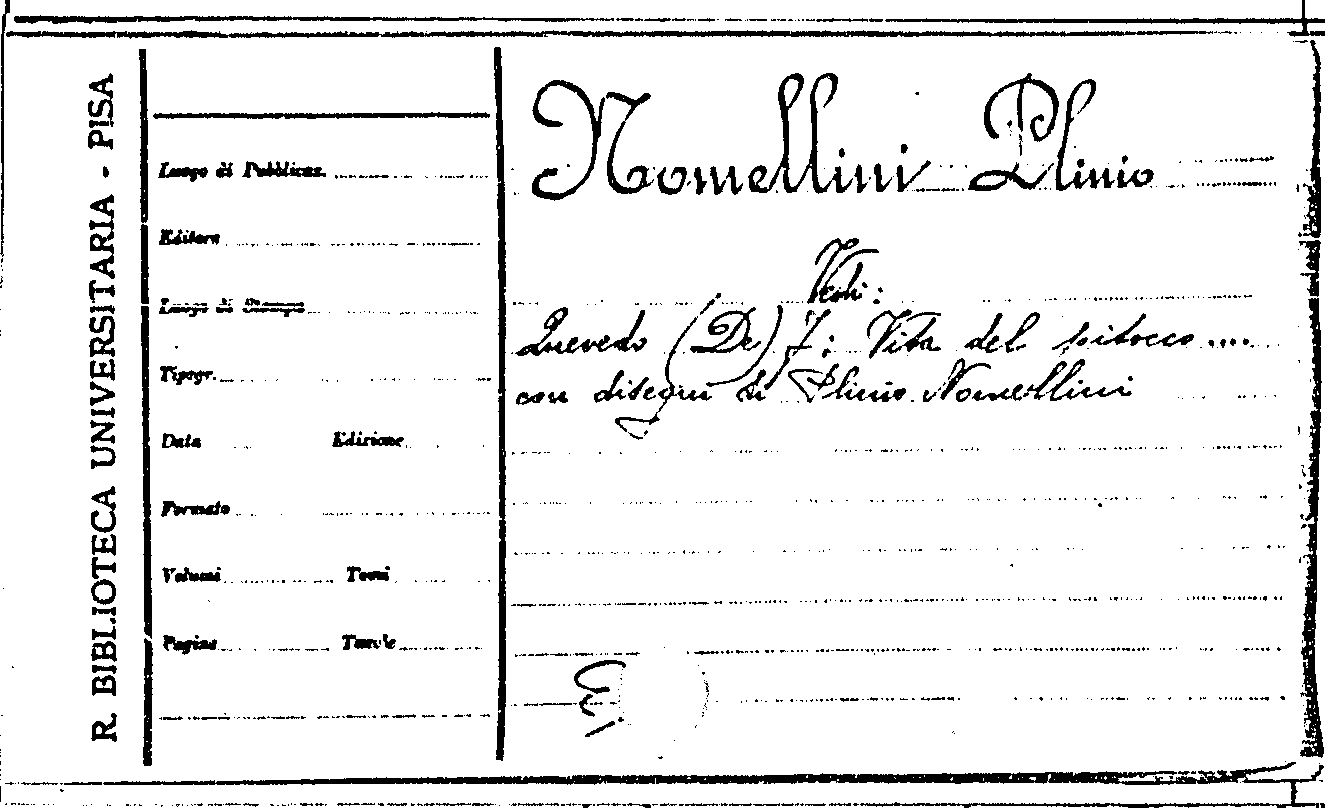 R. BIBLIOTECA UNIVERSITARIA - PISA
Luogo di Pubblicaz.
Editore
Luogo di Stampa
Tipogr.
Data Edizione
Formato
Volumi Tomi
Pagine Tavole
Nomellini Plinio
Vedi:
Quevedo (De) F: Vita del pitocco ....
con disegni di Plinio Nomellini